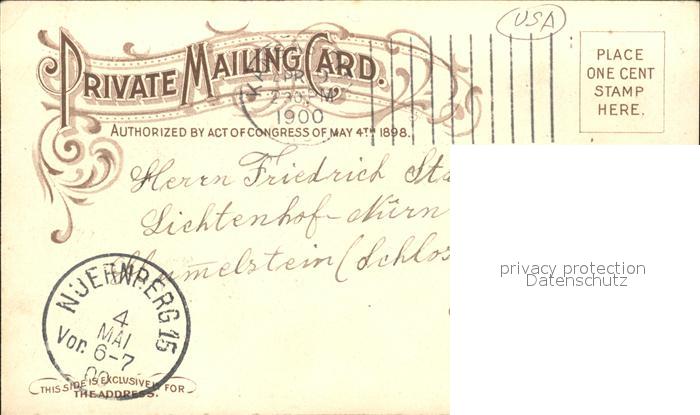 USA
PRIVATE MAILING CARD.
APR
2 30 PM
1900
PLACE
ONE CENT
STAMP
HERE.
AUTHORIZED BY ACT OF CONGRESS OF MAY 4TH 1898.
Herrn Friedrich Sta
Lichtenhof-Nürn
Hummelstein (Schlos
privacy protection
Datenschutz
NUERNBERG 15
4
MAI
Vor. 6-7
00
THIS SIDE IS EXCLUSIVELY FOR
THE ADDRESS.